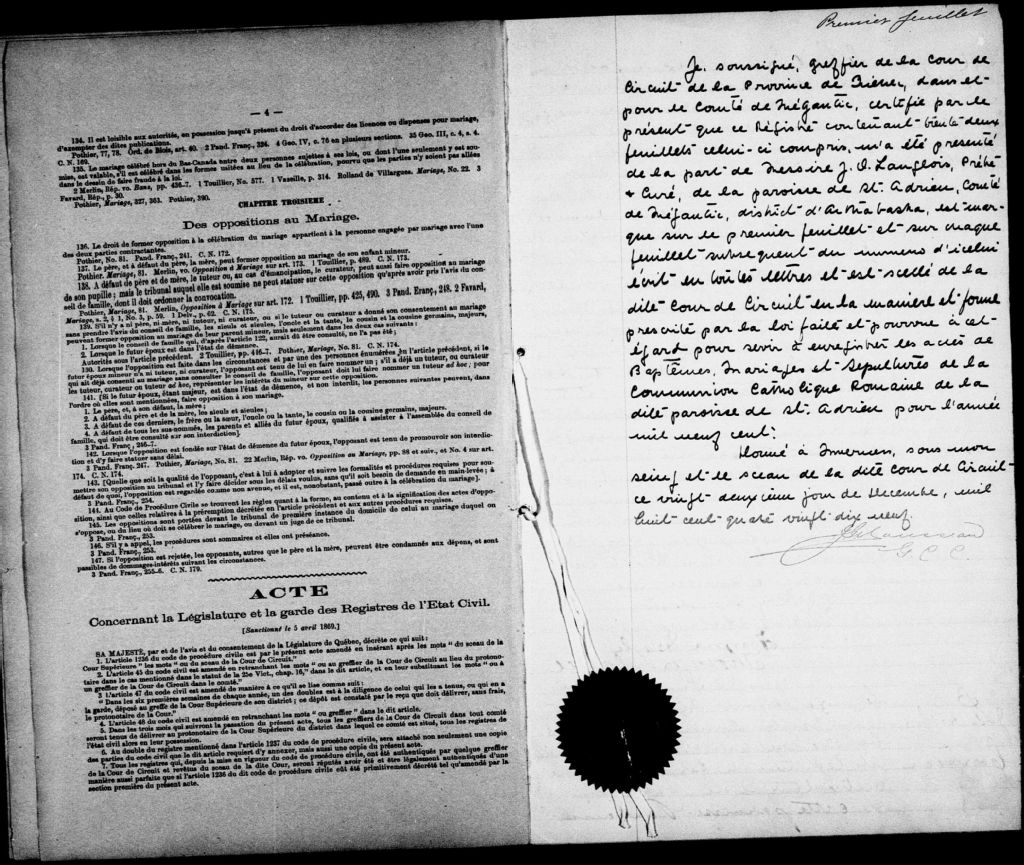 — 4 —
134. Il est loisible aux autorités, en possession jusqu'à présent du droit d'accorder des licences ou dispenses pour mariage,
d'exempter des dites publications.
Pothier, 77, 78. Ord. de Blois, art. 40. 2 Pand. Franç., 334. 4 Geo. IV, c. 76 en plusieurs sections. 35 Geo. III, c. 4, s. 4.
C. N. 169.
135. Le mariage célébré hors du Bas-Canada entre deux personnes sujettes à ses lois, ou dont l'une seulement y est sou-
mise, est valable, s'il est célébré dans les formes usitées au lieu de la célébration, pourvu que les parties n'y soient pas allées
dans le dessein de faire fraude à la loi.
2 Merlin, Rép. vo. Bans, pp. 436-7. 1 Touillier, No. 577. 1 Vazeille, p. 314. Rolland de Villargues. Mariage, No. 22. 3
Favard, Rép., p. 30.
Pothier, Mariage, 327, 363. Pothier, 390.
CHAPITRE TROISIEME
Des oppositions au Mariage.
136. Le droit de former opposition à la célébration du mariage appartient à la personne engagée par mariage avec l'une
des deux parties contractantes.
Pothier, No. 81. Pand. Franç., 241. C. N. 172.
137. Le père, et à défaut du père, la mère, peut former opposition au mariage de son enfant mineur.
Pothier. Mariage, 81. Merlin, vo. Opposition à Mariage sur art. 173. 1 Touillier, p. 489. C. N. 173.
138. A défaut de père et de mère, le tuteur ou, au cas d'émancipation, le curateur, peut aussi faire opposition au mariage
de son pupille ; mais le tribunal auquel elle est soumise ne peut statuer sur cette opposition qu'après avoir pris l'avis du con-
seil de famille, dont il doit ordonner la convocation.
Pothier, Mariage, 81. Merlin, Opposition à Mariage sur art. 172. 1 Touillier, pp. 425, 490. 3 Pand. Franç., 248. 2 Favard,
Mariage, s. 2, § 1, No. 3, p. 59. 1 Delv., p. 62. C. N. 175.
139. S'il n'y a ni père, ni mère, ni tuteur, ni curateur, ou si le tuteur ou curateur a donné son consentement au mariage
sans prendre l'avis du conseil de famille, les aïeuls et aïeules, l'oncle et la tante, le cousin et la cousine germains, majeurs,
peuvent former opposition au mariage de leur parent mineur, mais seulement dans les deux cas suivants :
1. Lorsque le conseil de famille qui, d'après l'article 122, aurait dû être consulté, ne l'a pas été ;
2. Lorsque le futur époux est dans l'état de démence.
Autorités sous l'article précédent. 2 Touillier, pp. 416-7. Pothier, Mariage, No. 81. C. N. 174.
130. Lorsque l'opposition est faite dans les circonstances et par une des personnes énumérées en l'article précédent, si le
futur époux mineur n'a ni tuteur, ni curateur, l'opposant est tenu de lui en faire nommer un ; s'il a déjà un tuteur, ou curateur
qui ait déjà consenti au mariage sans consulter le conseil de famille, l'opposant doit lui faire nommer un tuteur ad hoc ; pour
les tuteur, curateur ou tuteur ad hoc, représenter les intérêts du mineur sur cette opposition.
141. [Si le futur époux, étant majeur, est dans l'état de démence, et non interdit, les personnes suivantes peuvent, dans
l'ordre où elles sont mentionnées, faire opposition à son mariage.
1. Le père, et, à son défaut, la mère ;
2. A défaut du père et de la mère, les aïeuls et aïeules ;
3. A défaut de ces derniers, le frère ou la sœur, l'oncle ou la tante, le cousin ou la cousine germains, majeurs.
4. A défaut de tous les sus-nommés, les parents et alliés du futur époux, qualifiés à assister à l'assemblée du conseil de
famille, qui doit être consulté sur son interdiction].
3 Pand. Franç., 246-7.
142. Lorsque l'opposition est fondée sur l'état de démence du futur époux, l'opposant est tenu de promouvoir son interdic-
tion et d'y faire statuer sans délai.
3 Pand. Franç. 247. Pothier, Mariage, No. 81. 22 Merlin, Rép. vo. Opposition au Mariage, pp. 88 et suiv., et No. 4 sur art.
174. C. N. 174.
143. [Quelle que soit la qualité de l'opposant, c'est à lui à adopter et suivre les formalités et procédures requises pour sou-
mettre son opposition au tribunal et l'y faire décider sous les délais voulus, sans qu'il soit besoin de demande en main-levée ; à
défaut de quoi, l'opposition est regardée comme non avenue, et il est, nonobstant, passé outre à la célébration du mariage].
3 Pand. Franç., 254.
144. Au Code de Procédure Civile se trouvent les règles quant à la forme, au contenu et à la signification des actes d'oppo-
sition, ainsi que celles relatives à la péremption décrétée en l'article précédent et aux autres procédures requises.
145. Les oppositions sont portées devant le tribunal de première instance du domicile de celui au mariage duquel on
s'oppose, ou du lieu où doit se célébrer le mariage, ou devant un juge de ce tribunal.
3 Pand. Franç., 253.
146. S'il y a appel, les procédures sont sommaires et elles ont préséance.
3 Pand. Franç., 253.
147. Si l'opposition est rejetée, les opposants, autres que le père et la mère, peuvent être condamnés aux dépens, et sont
passibles de dommages-intérêts suivant les circonstances.
3 Pand. Franç., 255-6. C. N. 179.
ACTE
Concernant la Législature et la garde des Registres de l'Etat Civil.
[Sanctionné le 5 avril 1869.]
SA MAJESTÉ, par et de l'avis et du consentement de la Législature de Québec, décrète ce qui suit :
1. L'article 1236 du code de procédure civile est par le présent acte amendé en insérant après les mots " du sceau de la
Cour Supérieure " les mots " ou du sceau de la Cour de Circuit."
2. L'article 45 du code civil est amendé en retranchant les mots " ou au greffier de la Cour de Circuit au lieu du protono-
taire dans le cas mentionné dans le statut de la 25e Vict., chap. 16," dans le dit article, et en leur substituant les mots " ou à
un greffier de la Cour de Circuit dans le comté."
3 L'article 47 du code civil est amendé de manière à ce qu'il se lise comme suit :
" Dans les six premières semaines de chaque année, un des doubles est à la diligence de celui qui les a tenus, ou qui en a
la garde, déposé au greffe de la Cour Supérieure de son district ; ce dépôt est constaté par le reçu que doit délivrer, sans frais,
le protonotaire de la Cour."
4. L'article 48 du code civil est amendé en retranchant les mots " ou greffier " dans le dit article.
5. Dans les trois mois qui suivront la passation du présent acte, tous les greffiers de la Cour de Circuit dans tout comté
seront tenus de délivrer au protonotaire de la Cour Supérieure du district dans lequel ce comté est situé, tous les registres de
l'état civil alors en leur possession.
6. Au double du registre mentionné dans l'article 1237 du code de procédure civile, sera attaché non seulement une copie
des parties du code civil que le dit article requiert d'y annexer, mais aussi une copie du présent acte.
7. Tous les registres qui, depuis la mise en vigueur du code de procédure civile, ont été authentiqués par quelque greffier
de la Cour de Circuit et revêtus du sceau de la dite Cour, seront réputés avoir été et être légalement authentiqués d'une
manière aussi parfaite que si l'article 1236 du dit code de procédure civile eût été primitivement décrété tel qu'amendé par la
section première du présent acte.
Premier feuillet
Je, soussigné, greffier de la Cour de
Circuit de la Province de Québec, dans et
pour le Comté de Mégantic, certifie par le
présent que ce Régistre contenant trente deux
feuillets celui-ci compris, m'a été présenté
de la part de Messire J. O. Langlois, Prêtre
& Curé, de la paroisse de St. Adrien, Comté
de Mégantic, district d'Arthabaska, est mar-
que sur le premier feuillet et sur chaque
feuillet subsequent du numero d'icelui
écrit en toutes lettres et est scellé de la
dite Cour de Circuit en la manière et forme
prescrite par la loi faite et pourvue à cet
égard pour servir à enregistrer les actes de
Baptêmes, Mariages et Sepultures de la
Communion Catholique Romaine de la
dite paroisse de St. Adrien pour l'année
mil neuf cent.
Donné à Inverness, sous mon
seing et le sceau de la dite Cour de Circuit
ce vingt deuxième jour de Décembre, mil
huit cent quatre vingt dix neuf.
G. C. C.